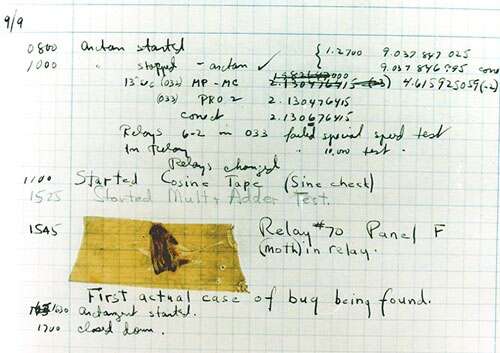 9/9
0800 Antan started { 1.2700 9.037 847 025
1000 " stopped - antan ✓ 9.037 846 995 conect
13"uc (032) MP - MC 2.130476415 4.615925059(-2)
(033) PRO 2 2.130476415
conect 2.130676415
Relays 6-2 in 033 failed special speed test
In Relay " 10,000 test.
Relays changed
1100 Started Cosine Tape (Sine check)
1525 Started Mult + Adder Test.
1545 Relay #70 Panel F
(moth) in relay.
First actual case of bug being found.
1630 antangent started.
1700 closed down.